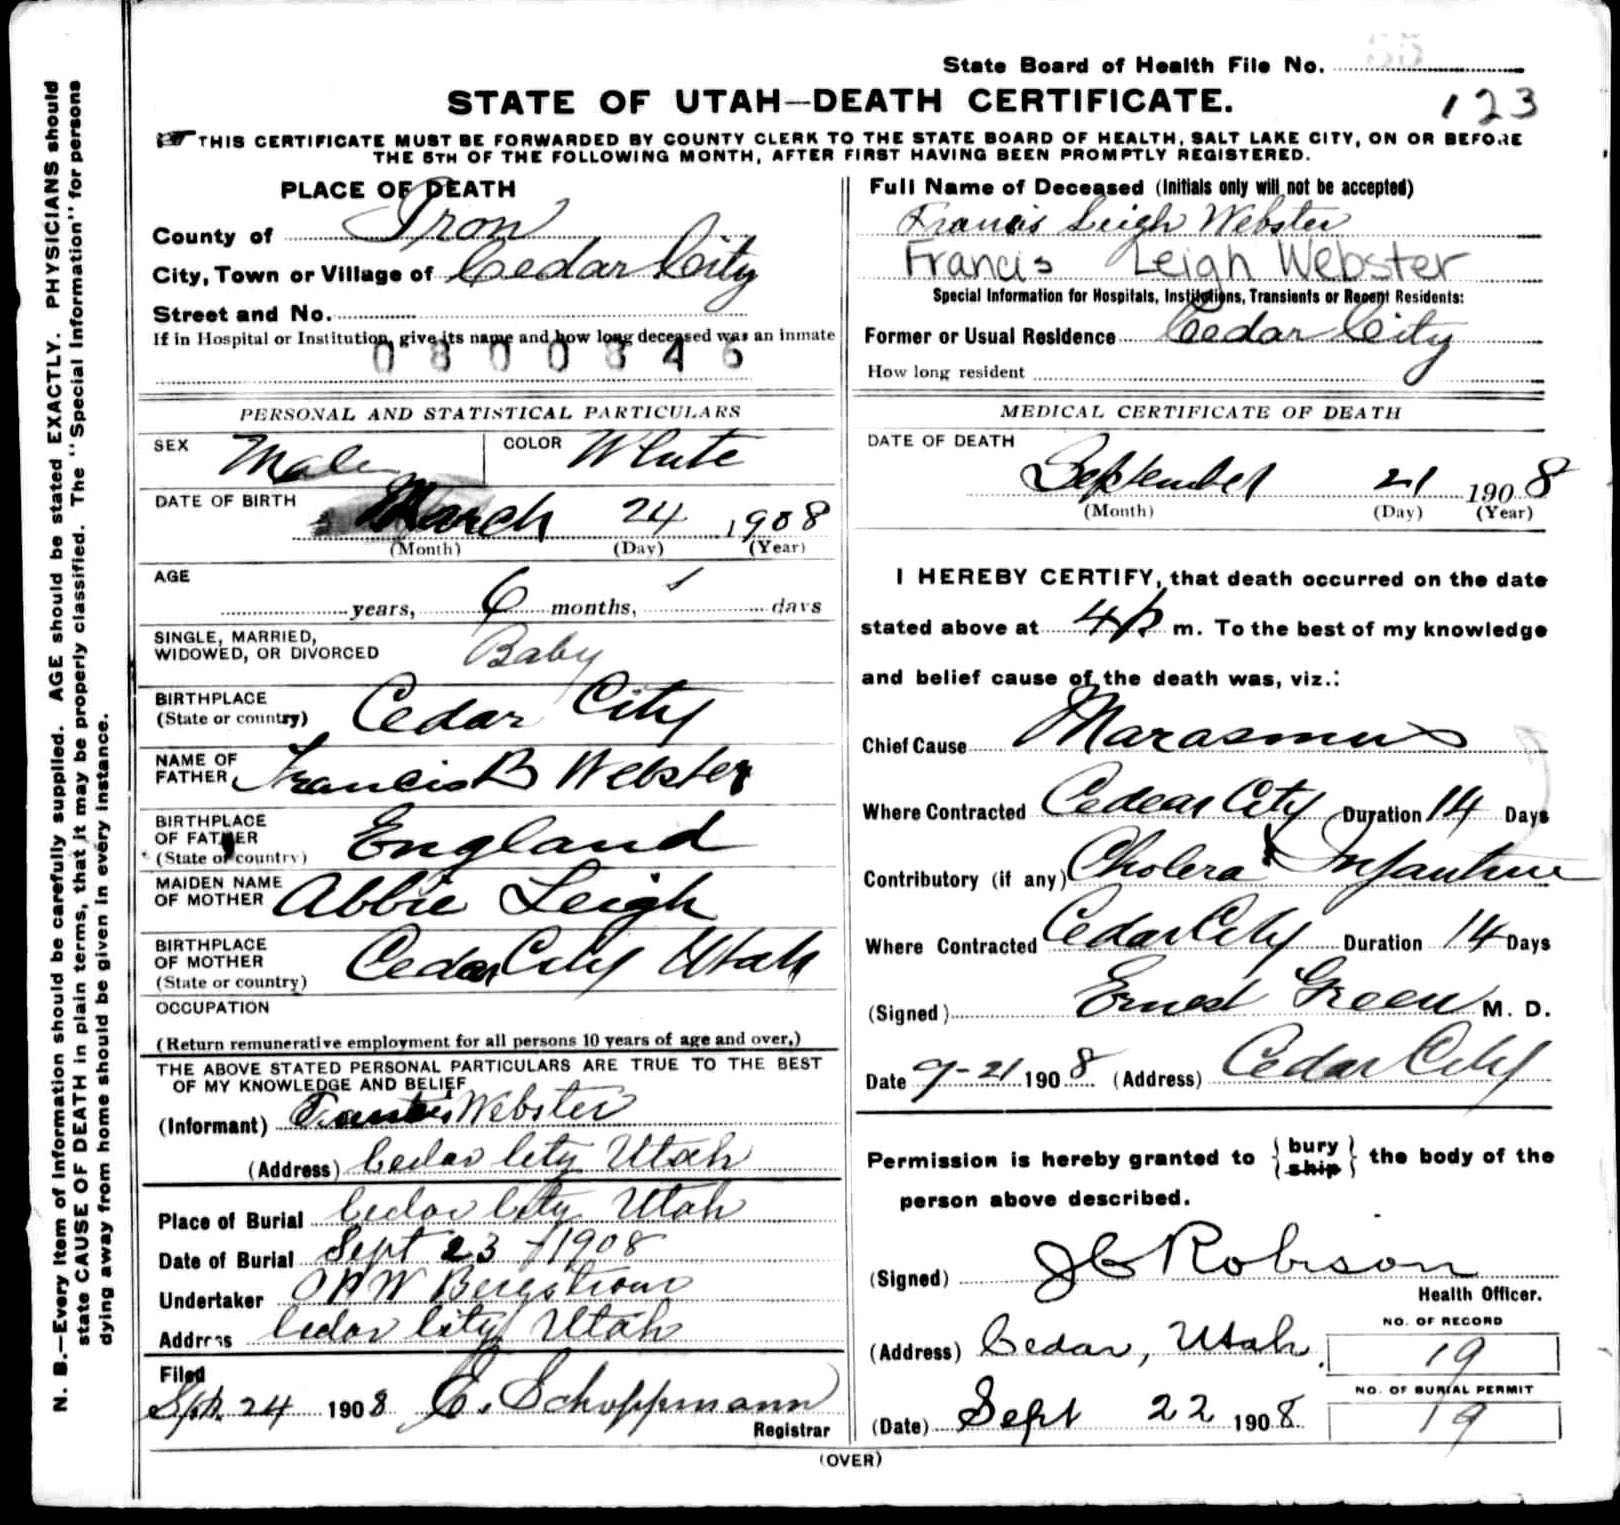 State Board of Health File No. 35
STATE OF UTAH—DEATH CERTIFICATE. 123
THIS CERTIFICATE MUST BE FORWARDED BY COUNTY CLERK TO THE STATE BOARD OF HEALTH, SALT LAKE CITY, ON OR BEFORE
THE 5TH OF THE FOLLOWING MONTH, AFTER FIRST HAVING BEEN PROMPTLY REGISTERED.
PLACE OF DEATH
County of Iron
City, Town or Village of Cedar City
Street and No.
If in Hospital or Institution, give its name and how long deceased was an inmate
0800346
Full Name of Deceased (Initials only will not be accepted)
Francis Leigh Webster
Francis Leigh Webster
Special Information for Hospitals, Institutions, Transients or Recent Residents:
Former or Usual Residence Cedar City
How long resident
PERSONAL AND STATISTICAL PARTICULARS
SEX Male COLOR White
DATE OF BIRTH March 24 1908
(Month) (Day) (Year)
AGE
years, 6 months, days
SINGLE, MARRIED,
WIDOWED, OR DIVORCED Baby
BIRTHPLACE
(State or country) Cedar City
NAME OF
FATHER Francis B Webster
BIRTHPLACE
OF FATHER
(State or country) England
MAIDEN NAME
OF MOTHER Abbie Leigh
BIRTHPLACE
OF MOTHER
(State or country) Cedar City Utah
OCCUPATION
(Return remunerative employment for all persons 10 years of age and over.)
THE ABOVE STATED PERSONAL PARTICULARS ARE TRUE TO THE BEST
OF MY KNOWLEDGE AND BELIEF
(Informant) Francis Webster
(Address) Cedar City Utah
Place of Burial Cedar City Utah
Date of Burial Sept 23 1908
Undertaker Bergstrom
Address Cedar City Utah
Filed
Sept. 24 1908 C. Schoppmann
Registrar
MEDICAL CERTIFICATE OF DEATH
DATE OF DEATH
September 21 1908
(Month) (Day) (Year)
I HEREBY CERTIFY, that death occurred on the date
stated above at 4 p m. To the best of my knowledge
and belief cause of the death was, viz.:
Chief Cause Marasmus
Where Contracted Cedear City Duration 14 Days
Contributory (if any) Cholera Infantum
Where Contracted Cedar City Duration 14 Days
(Signed) Ernest Green M. D.
Date 9-21 1908 (Address) Cedar City
Permission is hereby granted to { bury ship } the body of the
person above described.
(Signed) J C Robison
Health Officer.
(Address) Cedar, Utah.
NO. OF RECORD
19
(Date) Sept 22 1908
NO. OF BURIAL PERMIT
19
(OVER)
N. B.—Every item of information should be carefully supplied. AGE should be stated EXACTLY. PHYSICIANS should
state CAUSE OF DEATH in plain terms, that it may be properly classified. The "Special Information" for persons
dying away from home should be given in every instance.